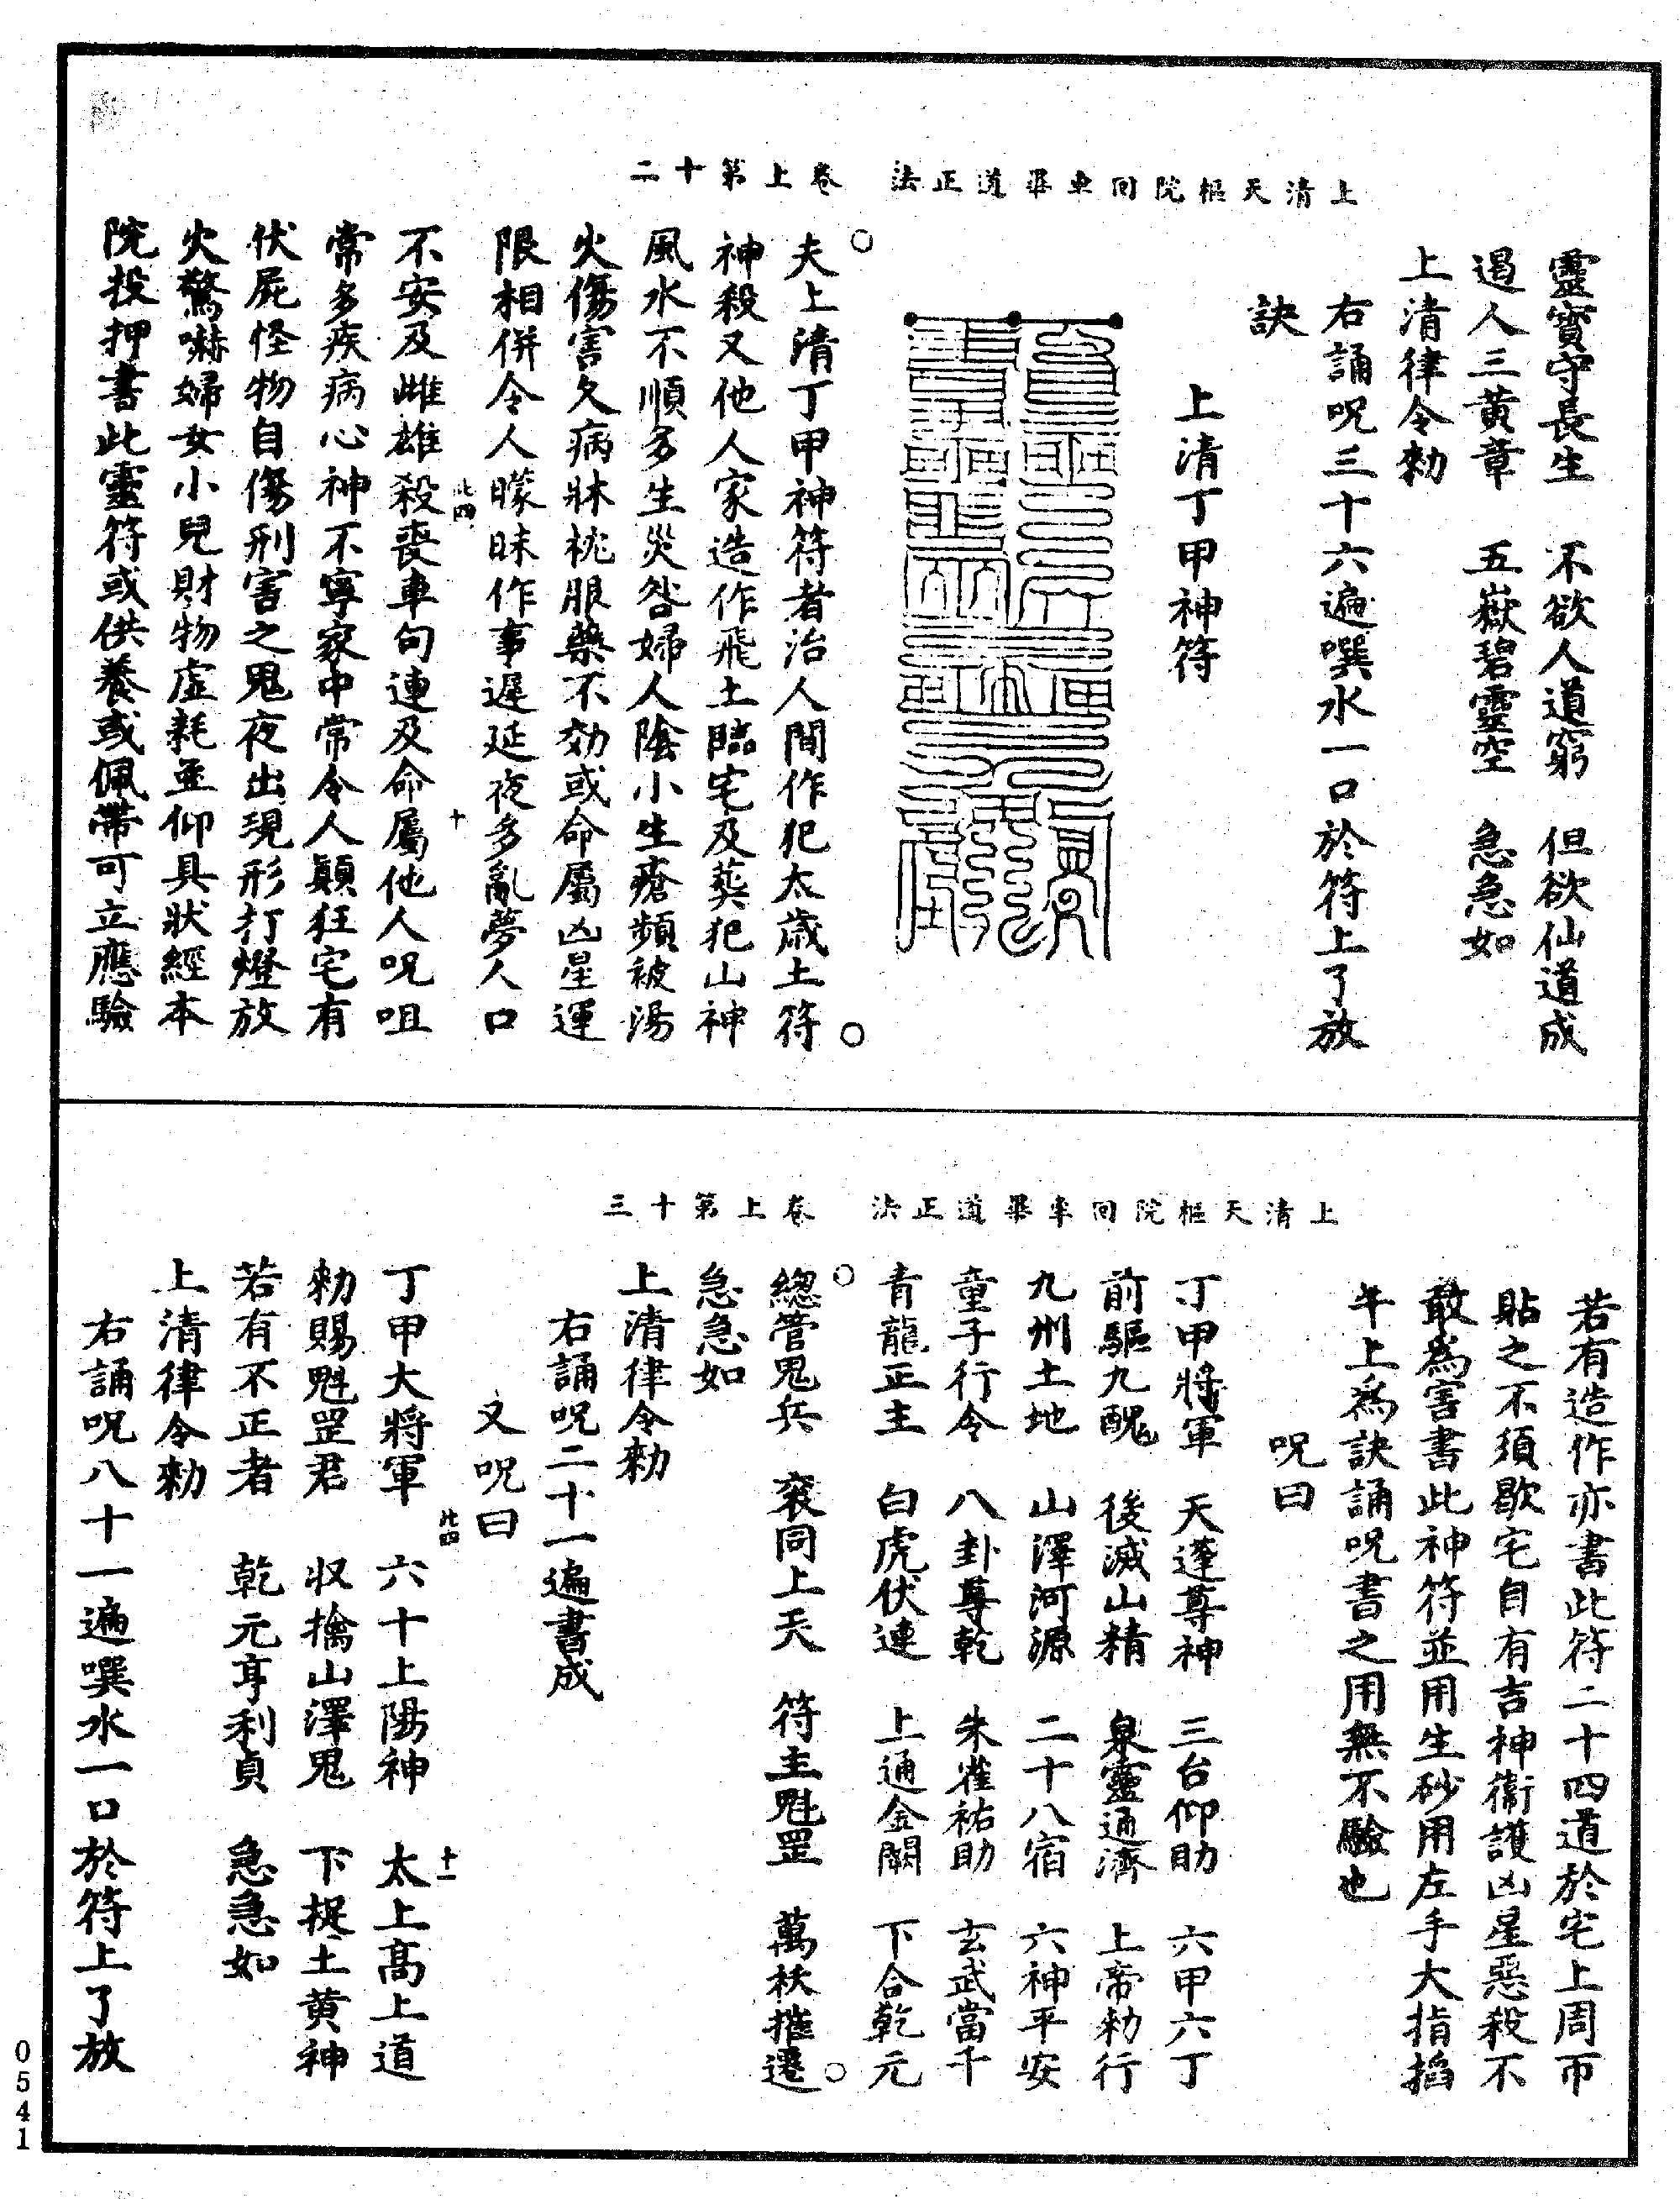 上清天樞院回車畢道正法　卷上第十二
靈寶守長生　不欲人道窮　但欲仙道成
遏人三黄章　五嶽碧靈空　急急如
上清律令勑
右誦呪三十六遍噀水一口於符上了放
訣
上清丁甲神符
夫上清丁甲神符者治人間作犯太歲土符
神殺又他人家造作飛土臨宅及葬犯山神
風水不順多生災咎婦人陰小生瘡頻被湯
火傷害久病牀枕服藥不効或命屬凶星運
限相併令人矇昧作事遲延夜多亂夢人口
不安及雌雄殺喪車句連及命屬他人呪咀
常多疾病心神不寧家中常令人顛狂宅有
伏屍怪物自傷刑害之鬼夜出現形打燈放
火驚嚇婦女小兒財物虛耗並仰具狀經本
院投押書此靈符或供養或佩帶可立應驗
此四　十
上清天樞院回車畢道正法　卷上第十三
若有造作亦書此符二十四道於宅上周帀
貼之不須歇宅自有吉神衞護凶星惡殺不
敢為害書此神符並用生砂用左手大指掐
午上為訣誦呪書之用無不驗也
呪曰
丁甲將軍　天蓬尊神　三台仰助　六甲六丁
前驅九醜　後滅山精　泉靈通濟　上帝勑行
九州土地　山澤河源　二十八宿　六神平安
童子行令　八卦尊乾　朱雀祐助　玄武當千
青龍正主　白虎伏連　上通金闕　下合乾元
總管鬼兵　衮同上天　符主魁罡　萬袄摧遷
急急如
上清律令勑
右誦呪二十一遍書成
又呪曰
丁甲大將軍　六十上陽神　太上高上道
勑賜魁罡君　収擒山澤鬼　下捉土黄神
若有不正者　乾元亨利貞　急急如
上清律令勑
右誦呪八十一遍噀水一口於符上了放
此四　十一
0541